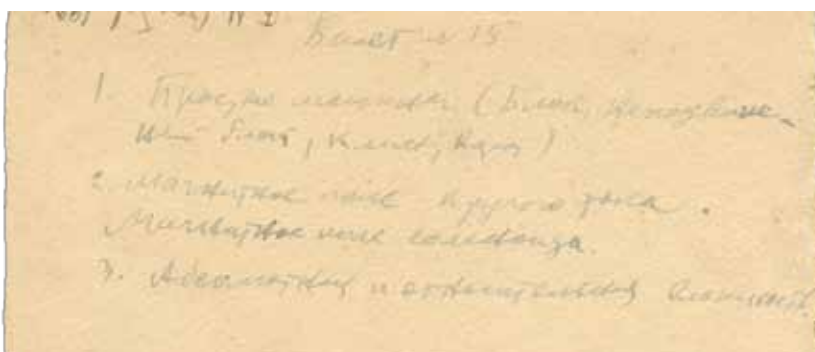 Билет № 15
1. Простые машины (блок, неподвиж-
ный блок, клин,
2. Магнитное поле кругого тока.
Магнитное поле соленоида.
3. Абсолютная и относительная влажность.